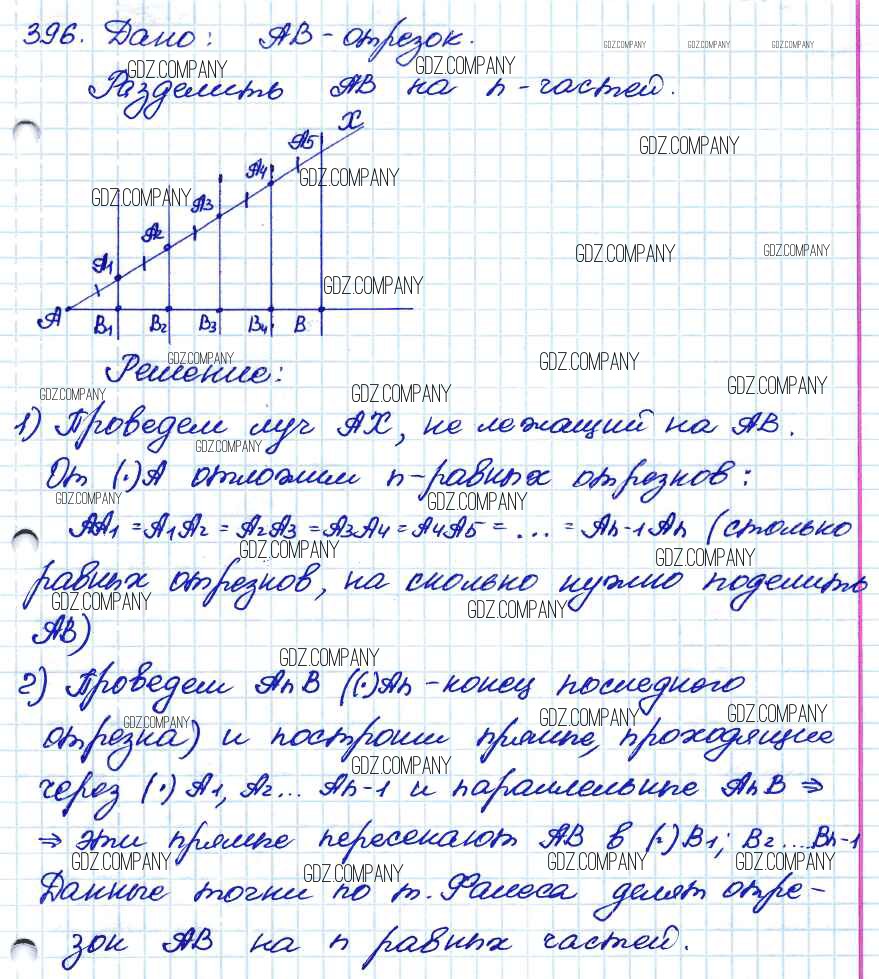 396. Дано: AB - отрезок.
GDZ.COMPANY GDZ.COMPANY GDZ.COMPANY
GDZ.COMPANY GDZ.COMPANY
Разделить AB на n - частей.
X
A5
GDZ.COMPANY
A4
GDZ.COMPANY
GDZ.COMPANY
A3
A2
GDZ.COMPANY GDZ.COMPANY
A1
GDZ.COMPANY
A B1 B2 B3 B4 B
GDZ.COMPANY GDZ.COMPANY
Решение:
GDZ.COMPANY GDZ.COMPANY GDZ.COMPANY
1) Проведем луч AX, не лежащий на AB.
GDZ.COMPANY
От (·)A отложим n-равных отрезков:
GDZ.COMPANY GDZ.COMPANY
AA1 = A1A2 = A2A3 = A3A4 = A4A5 = ... = An-1An (столько
GDZ.COMPANY GDZ.COMPANY
равных отрезков, на сколько нужно поделить
GDZ.COMPANY GDZ.COMPANY
AB)
GDZ.COMPANY
2) Проведем AnB ((·)An - конец последного
GDZ.COMPANY GDZ.COMPANY GDZ.COMPANY
отрезка) и построим прямые, проходящие
GDZ.COMPANY
через (·) A1, A2... An-1 и параллельные AnB ⇒
⇒ эти прямые пересекают AB в (·) B1; B2....Bn-1
GDZ.COMPANY GDZ.COMPANY GDZ.COMPANY GDZ.COMPANY
Данные точки по т. Фалеса делят отре-
зок AB на n равных частей.